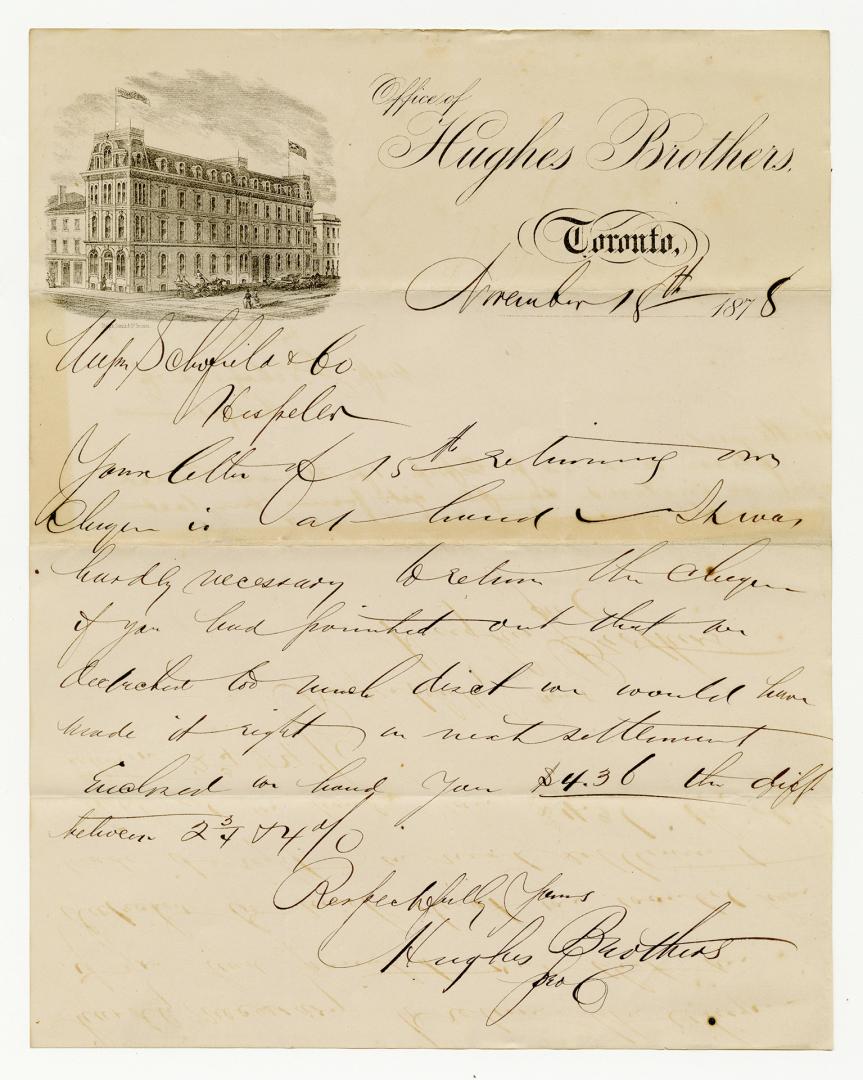 Office of
Hughes Brothers.
Toronto,
November 18th 1878
Schofield & Co
Hespeler
Your letter of 15th returning our
cheque is at hand It was
hardly necessary to return the cheque
if you had pointed out that we
deducted too much disct we would have
made it right in next settlement
Enclosed we hand you $4.36 the diff
between 2 3/4 & 4 %
Respectfully Yours
Hughes Brothers